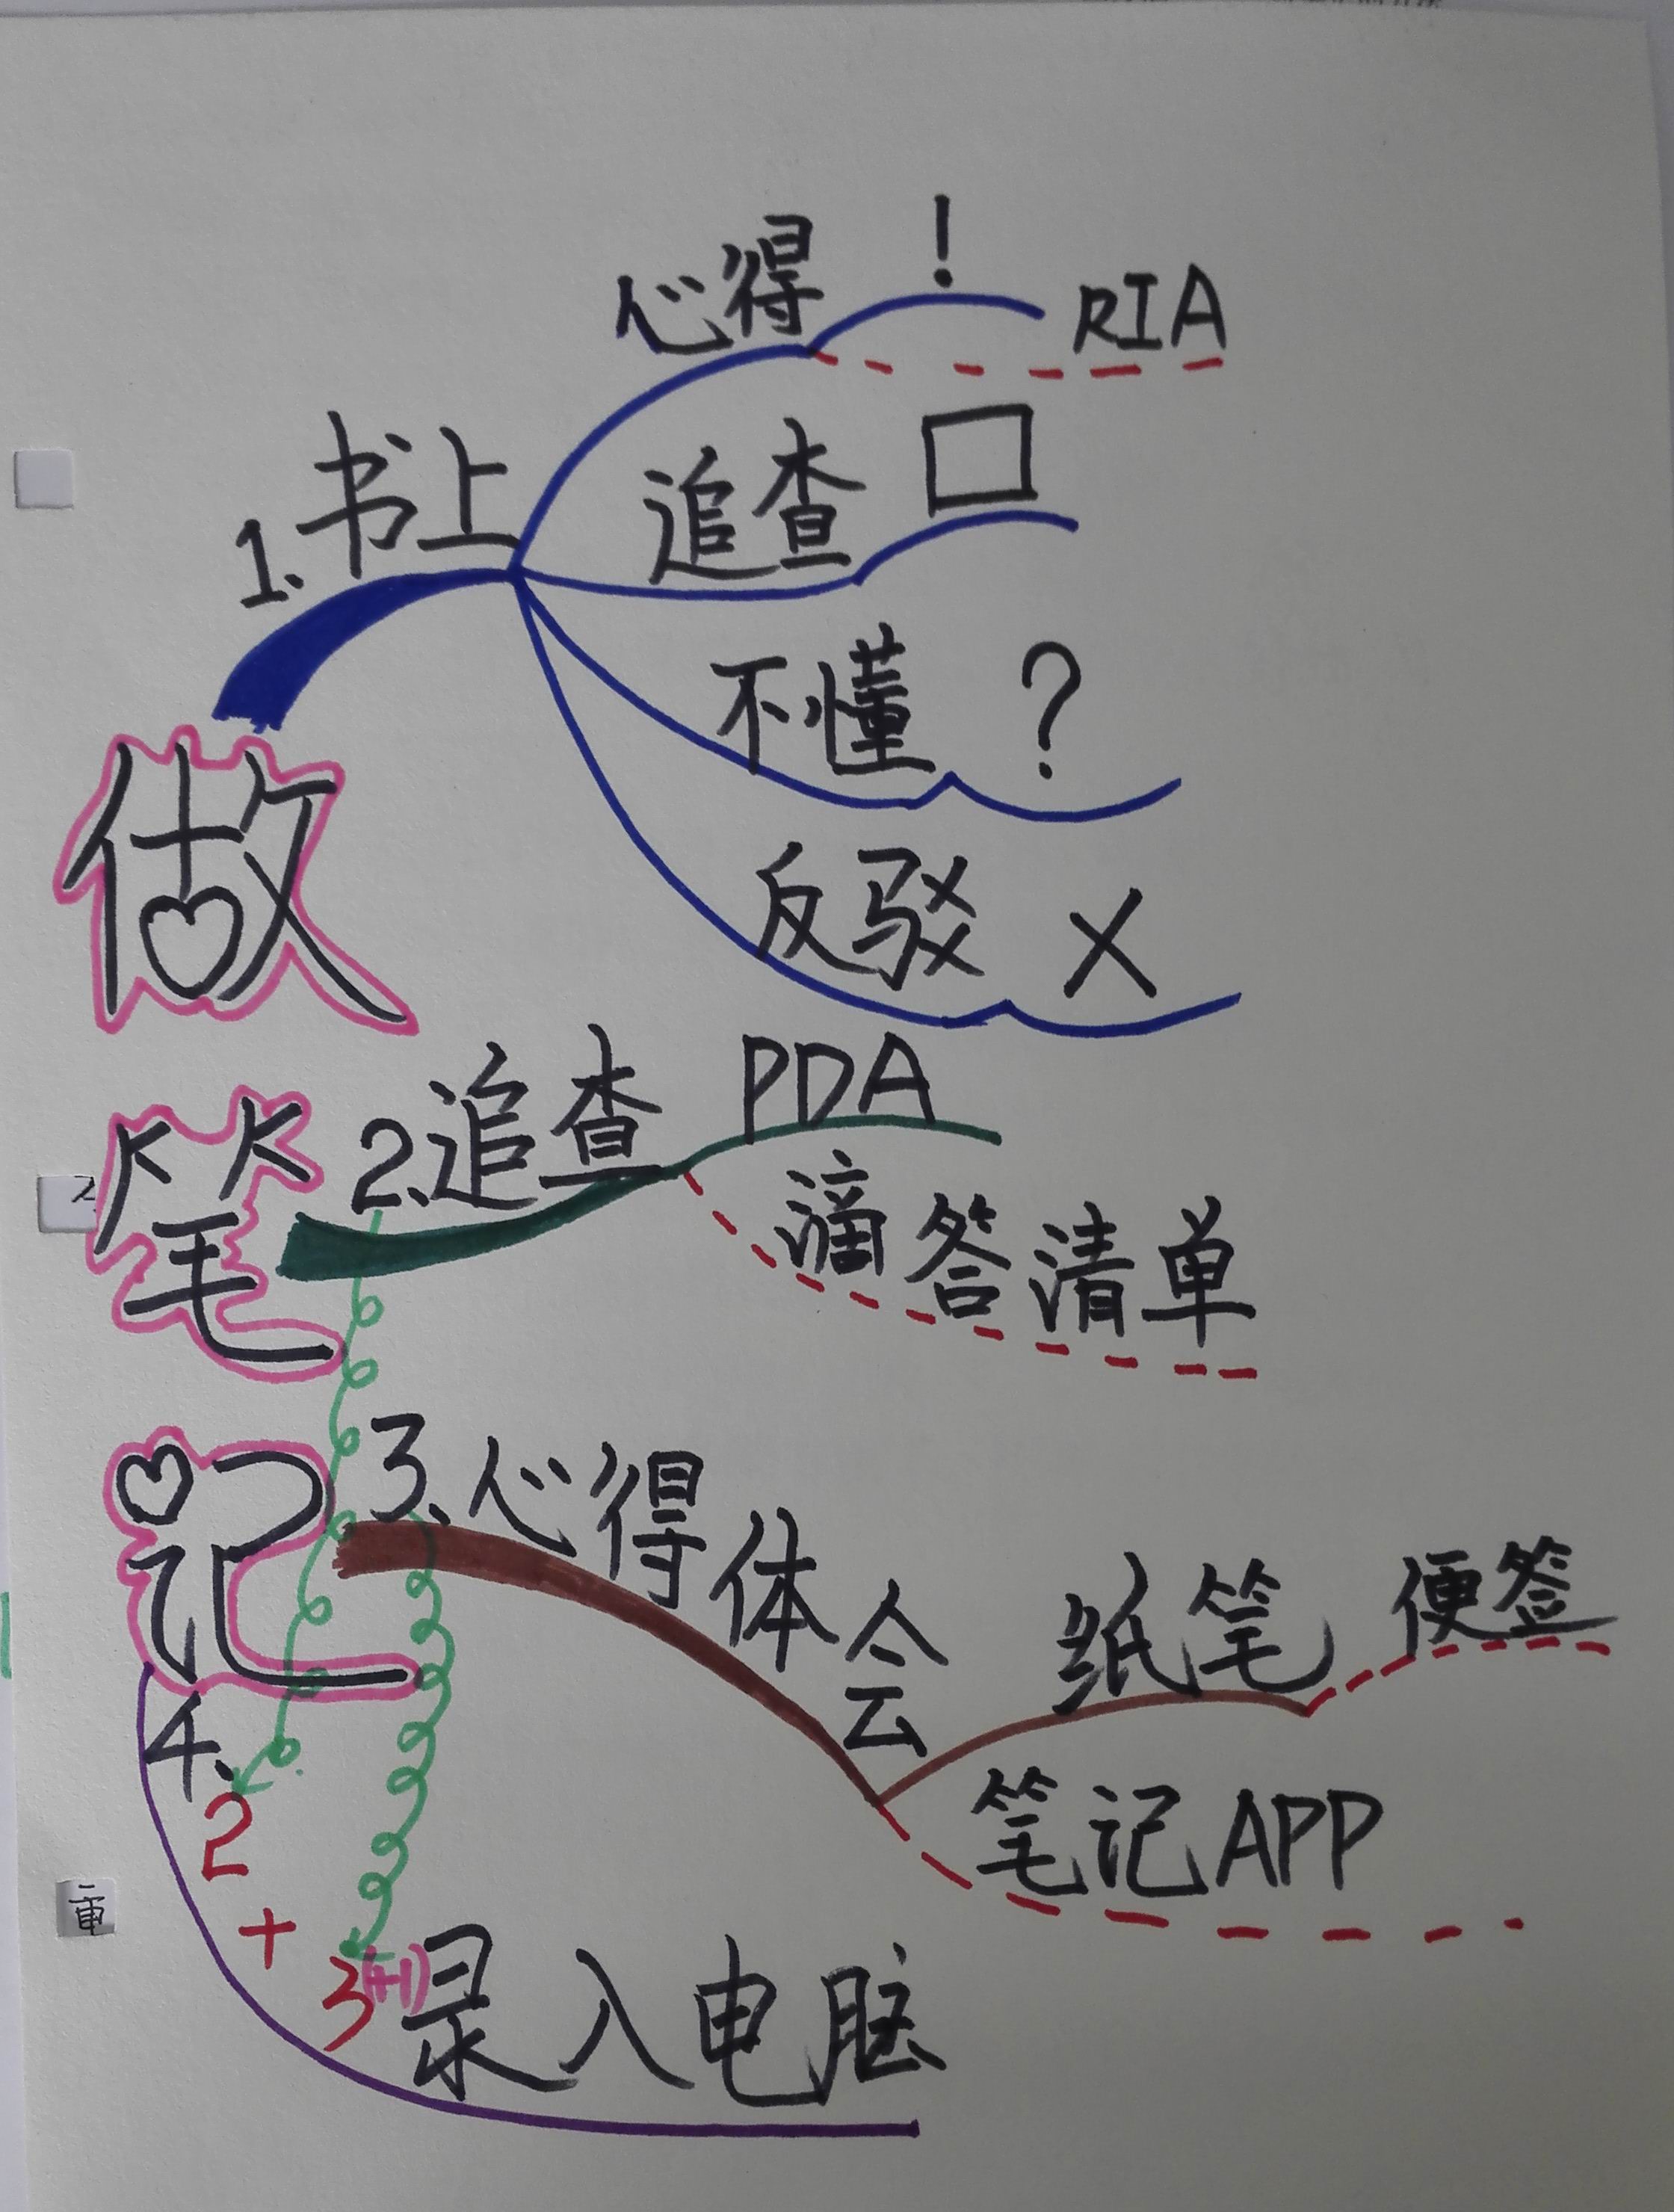 心得 ! RIA
1、书上
追查 □
不懂 ?
反驳 X
做
笔
记
2、追查 PDA
滴答清单
3、心得体会
纸笔 便签
笔记APP
4、
2
+
3(+1)
录入电脑